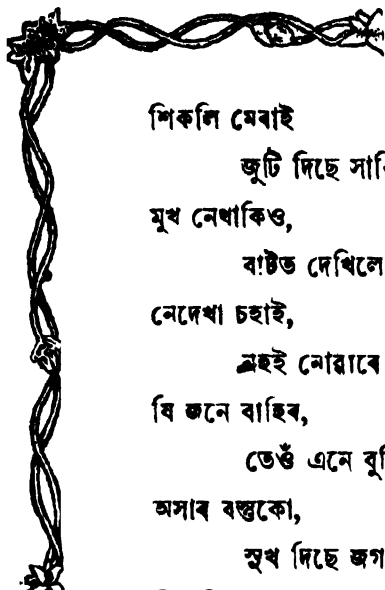 শিকলি মেৰাই
জুটি দিছে
মুখ নেথাকিও,
বাটত দেখিলে
নেদেখা চহাই,
নহই নোৱাৰে
যি জনে বাহিৰ,
তেওঁ এনে
অসাৰ বস্তুকো,
সুখ দিছে